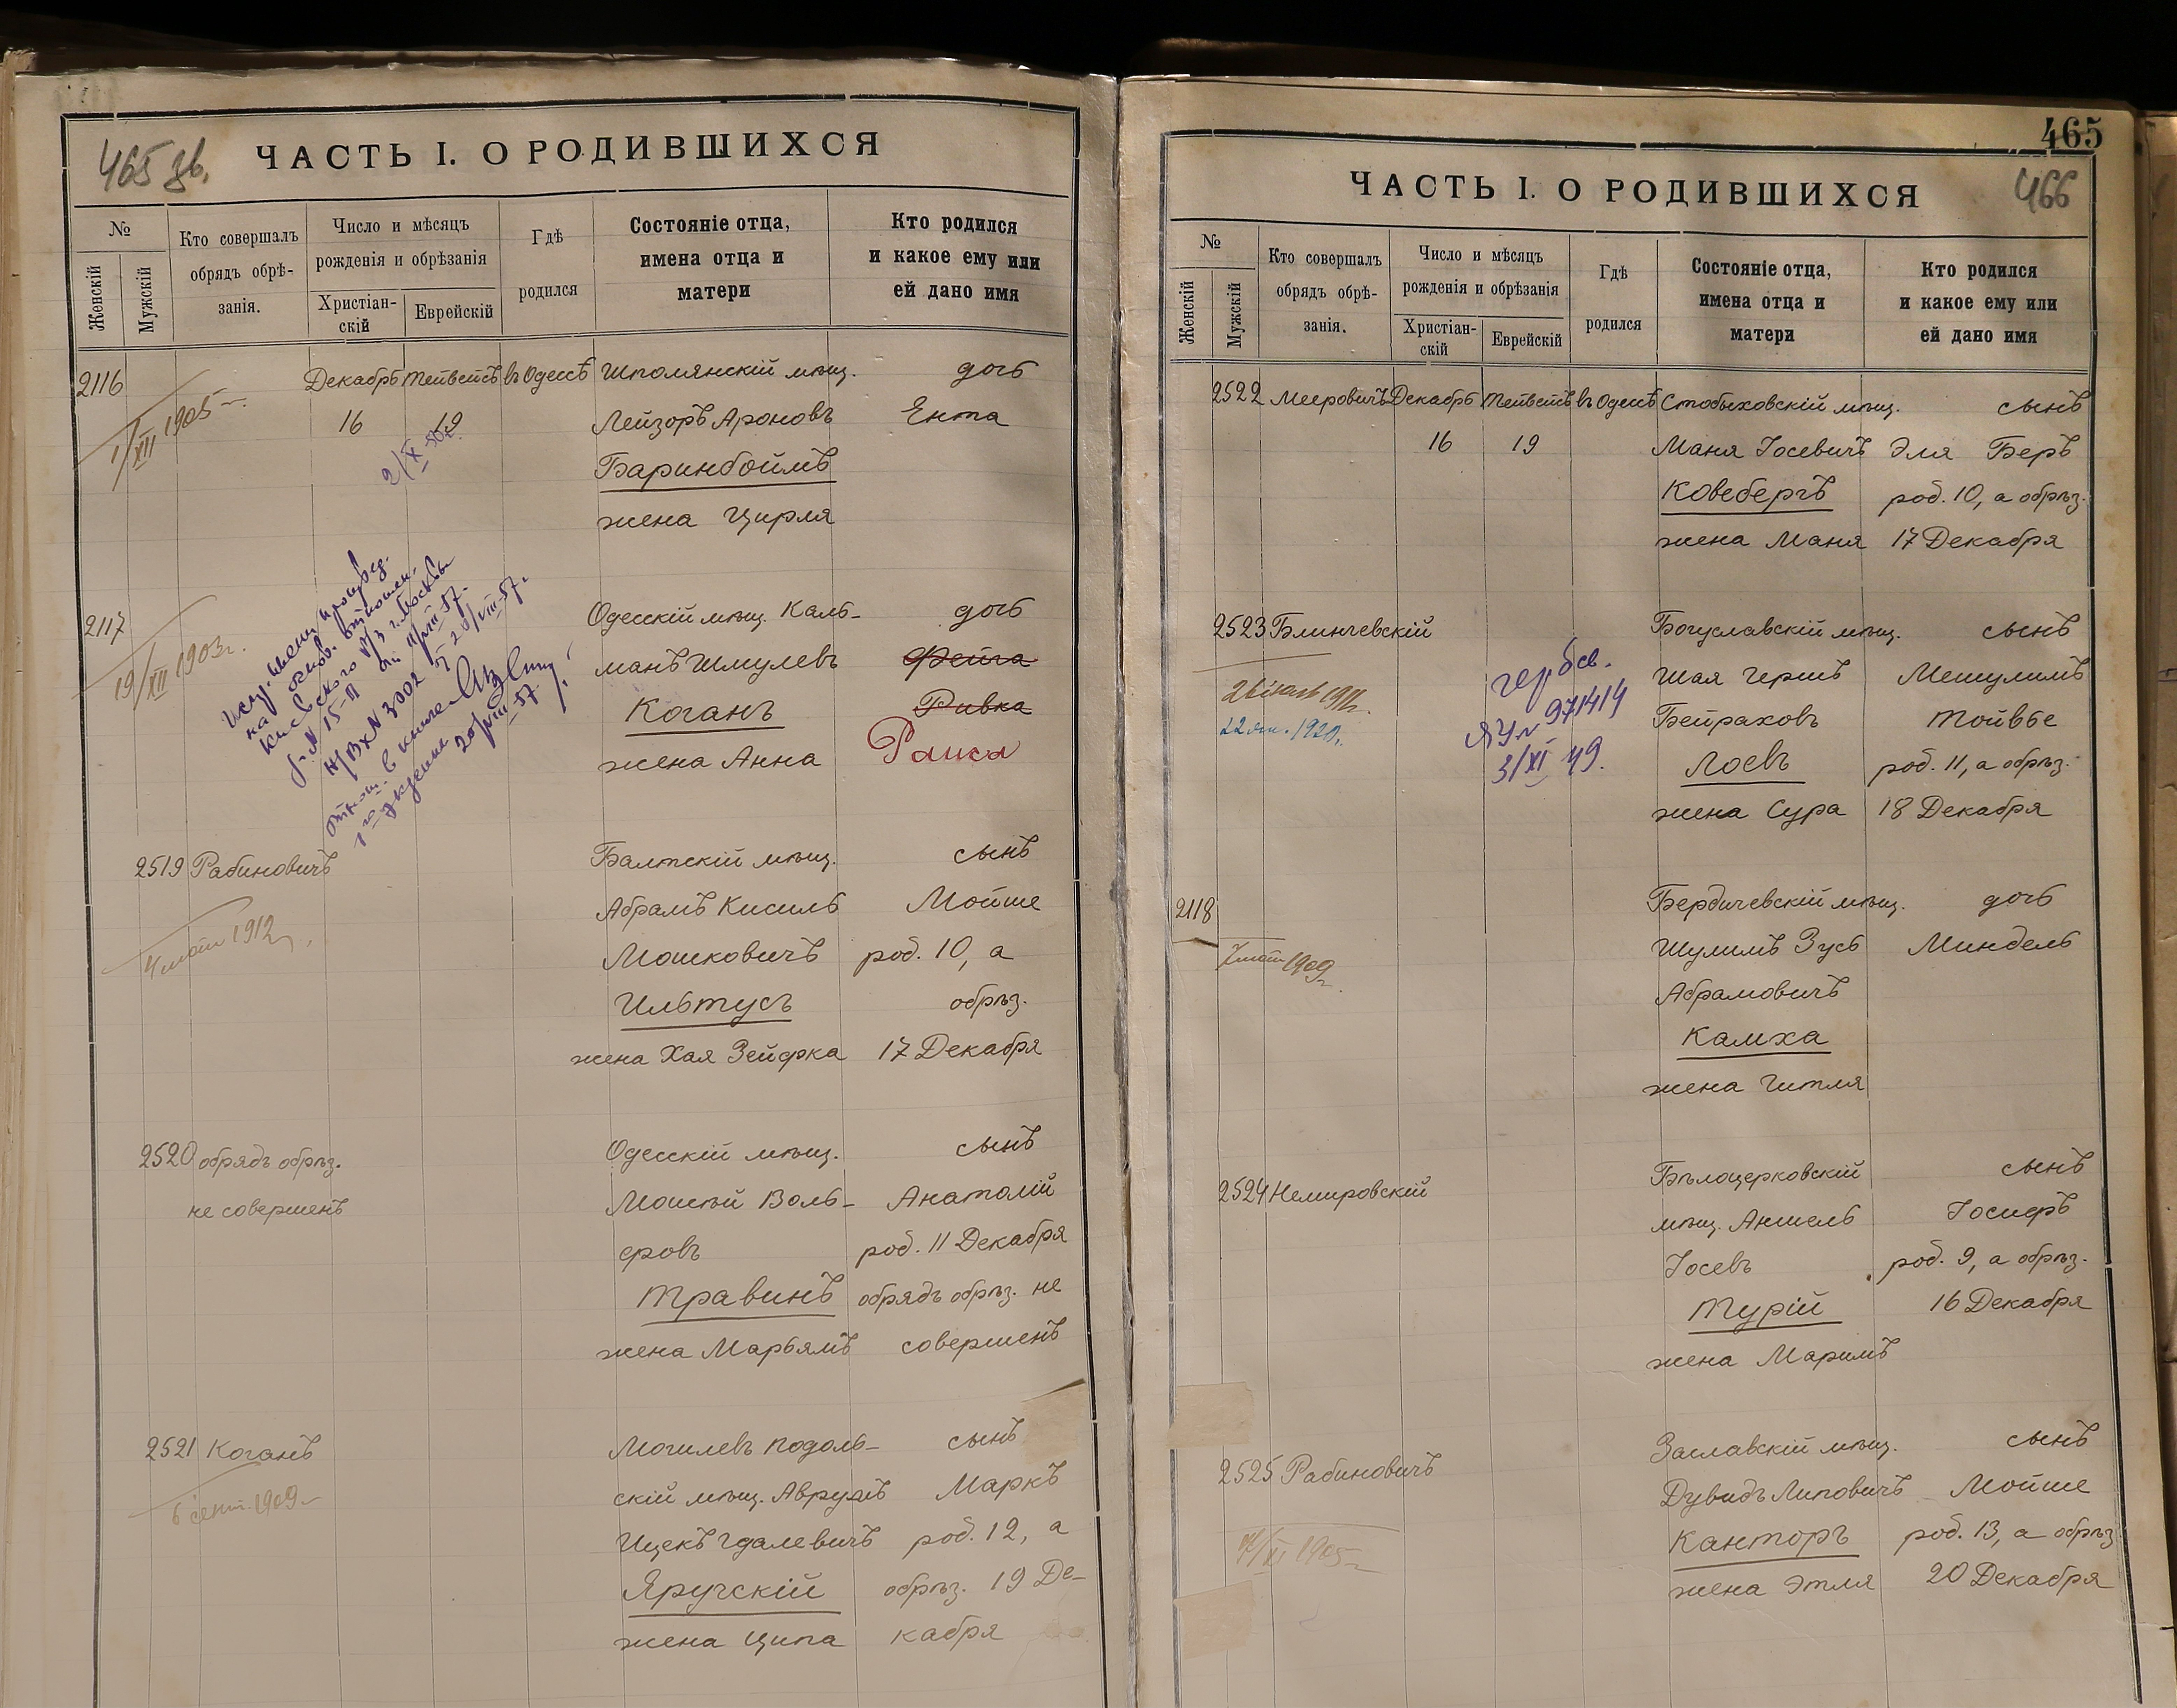 465 зв.
ЧАСТЬ I. О РОДИВШИХСЯ
№
Женскій
Мужскій
Кто совершалъ
обрядъ обрѣ-
занія.
Число и мѣсяцъ
рожденія и обрѣзанія
Христіан-
скій
Еврейскій
Гдѣ
родился
Состояніе отца,
имена отца и
матери
Кто родился
и какое ему или
ей дано имя
2116
1/XII 1905
Декабрь Тейвейсъ въ Одессѣ Шполянскій мѣщ. дочь
16 19 Лейзоръ Ароновъ Ента
2/X
Баринбоймъ
жена Цирля
2117
19/XII 1903г.
Одесскій мѣщ. Каль-
манъ Шмулевъ
Коганъ
жена Анна
дочь
Фейга
Ривка
Раиса
на основ.
Киевского г. Москвы
№ 15-П от 11/VIII-57.
Н/Вх № 3002 20/VIII-57.
в книге
1го 20/VIII-57.
2519 Рабиновичъ
1912
Балтскій мѣщ. сынъ
Абрамъ Кисиль Мойше
Мошковичъ род. 10, а
Ильтусъ обрѣз.
жена Хая Зейфка 17 Декабря
2520 обрядъ обрѣз.
не совершенъ
Одесскій мѣщ. сынъ
Мошкѣй Воль- Анатолій
фовъ род. 11 Декабря
Травинъ обрядъ обрѣз. не
жена Марьямъ совершенъ
2521 Коганъ
6 сент. 1909
Могилевъ Подоль- сынъ
скій мѣщ. Аврумъ Маркъ
Ицекъ Гдалевичъ род. 12, а
Яручскій обрѣз. 19 Де-
жена Ципа кабря
465
466
ЧАСТЬ I. О РОДИВШИХСЯ
№
Женскій
Мужскій
Кто совершалъ
обрядъ обрѣ-
занія.
Число и мѣсяцъ
рожденія и обрѣзанія
Христіан-
скій
Еврейскій
Гдѣ
родился
Состояніе отца,
имена отца и
матери
Кто родился
и какое ему или
ей дано имя
2522 Мееровичъ Декабрь Тейвейсъ въ Одессѣ Стобыховскій мѣщ. сынъ
16 19 Маня Іосевичъ Эля Беръ
Ковебергъ род. 10, а обрѣз.
жена Маня 17 Декабря
2523 Блинчевскій
22 1920г.
герб св.
ЯУ № 971414
3/XI 49.
Богуславскій мѣщ. сынъ
Шая Гершъ Мешулимъ
Бейраховъ Тойвье
Лоевъ род. 11, а обрѣз.
жена Сура 18 Декабря
2118
1909г.
Бердичевскій мѣщ. дочь
Шулимъ Зусь Миндель
Абрамовичъ
Камха
жена Гитля
2524 Немировскій
Бѣлоцерковскій сынъ
мѣщ. Аншель Іосиеръ
Іосевъ род. 9, а обрѣз.
Турій 16 Декабря
жена Маримъ
2525 Рабиновичъ
1905
Заславскій мѣщ. сынъ
Дувидъ Липовичъ Мойше
Канторъ род. 13, а обрѣз
жена Этля 20 Декабря